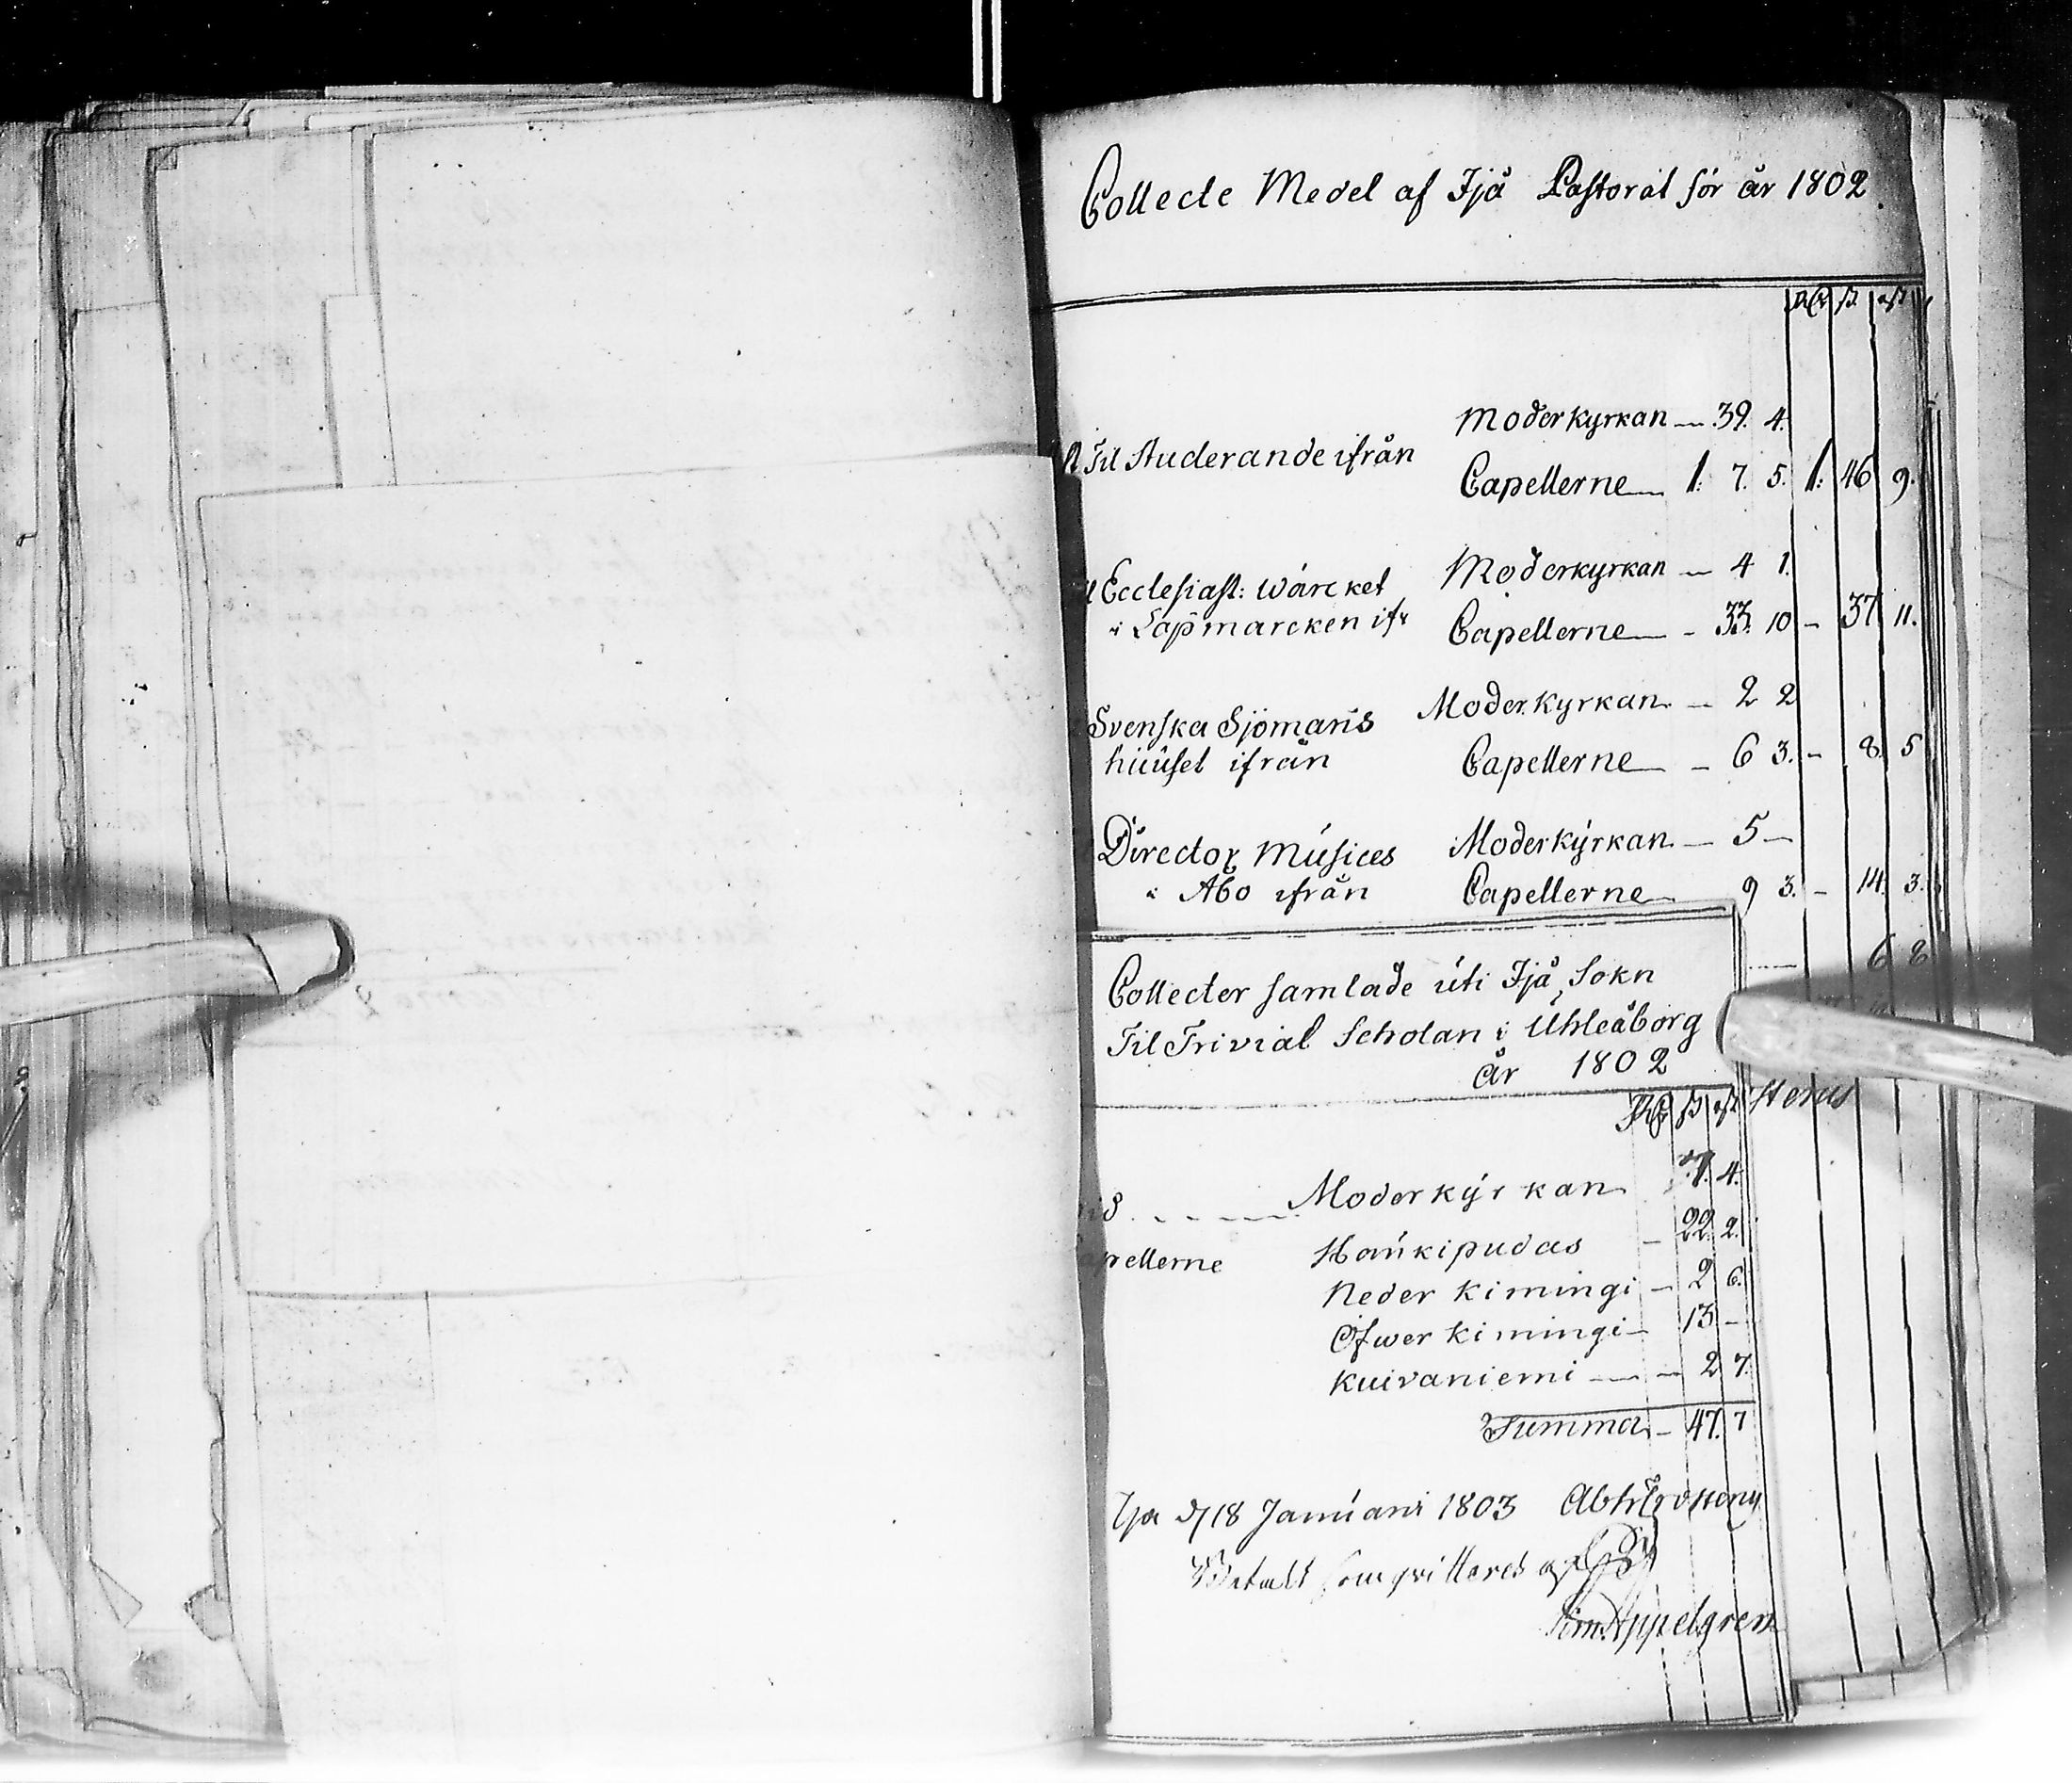 Collecte Medel af Ijå Pastorat för år 1802.
Rd ß rst
Moderkyrkan — 39. 4.
Til Studerande ifrån
Capellerne — 1: 7. 5. 1: 46 9.
Ecclesiast: wärcket Moderkyrkan — 4 1.
i Lapmarcken ifr Capellerne — - 33. 10 - 37 11.
Svenska Sjömans Moderkyrkan — 2 2
huuset ifrån Capellerne — - 6 3. - 8. 5
Director Musices Moderkyrkan — 5 —
i Abo ifrån Capellerne — 9 3. - 14. 3.
6 8
Collecter samlade uti Ijå Sokn
Til Trivial Scholan i Uhleåborg
år 1802
Rd ß rst
Moderkyrkan 7. 4.
Haukipudas — 22. 2.
apellerne
Neder kimingi — 2 6.
Öfwer kimingi — 13 -
Kuivaniemi — - 2 7.
Summa - 47. 7
Ijå d 18 Januari 1803
Betalt som qvitteras af
Appelgren